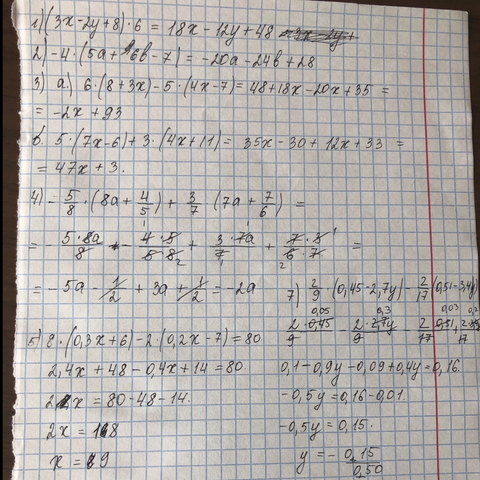 1) (3x-2y+8)·6 = 18x-12y+48
2) -4·(5a+6b-7)= -20a-24b+28
3) а) 6·(8+3x)-5·(4x-7)=48+18x-20x+35 =
= -2x+93
б. 5·(7x-6)+3·(4x+11)= 35x-30+12x+33 =
= 47x+3.
4) -5/8·(8a+4/5)+3/7·(7a+7/6) =
= -5·8a/8 - 4·5/5·8 + 3·7a/7 + 7·3/6·7 =
= -5a-1/2+3a+1/2=-2a
5) 8·(0,3x+6)-2·(0,2x-7)=80
2,4x+48-0,4x+14=80.
2x=80-48-14.
2x=18
x=9
7) 2/9·(0,45-2,7y)-2/17(0,51-3,4y)
2·0,45/9 - 2·2,7y/9 - 2/17
0,1-0,9y-0,09+0,4y=0,16.
-0,5y=0,16-0,01.
-0,5y=0,15.
y=-0,15/0,50